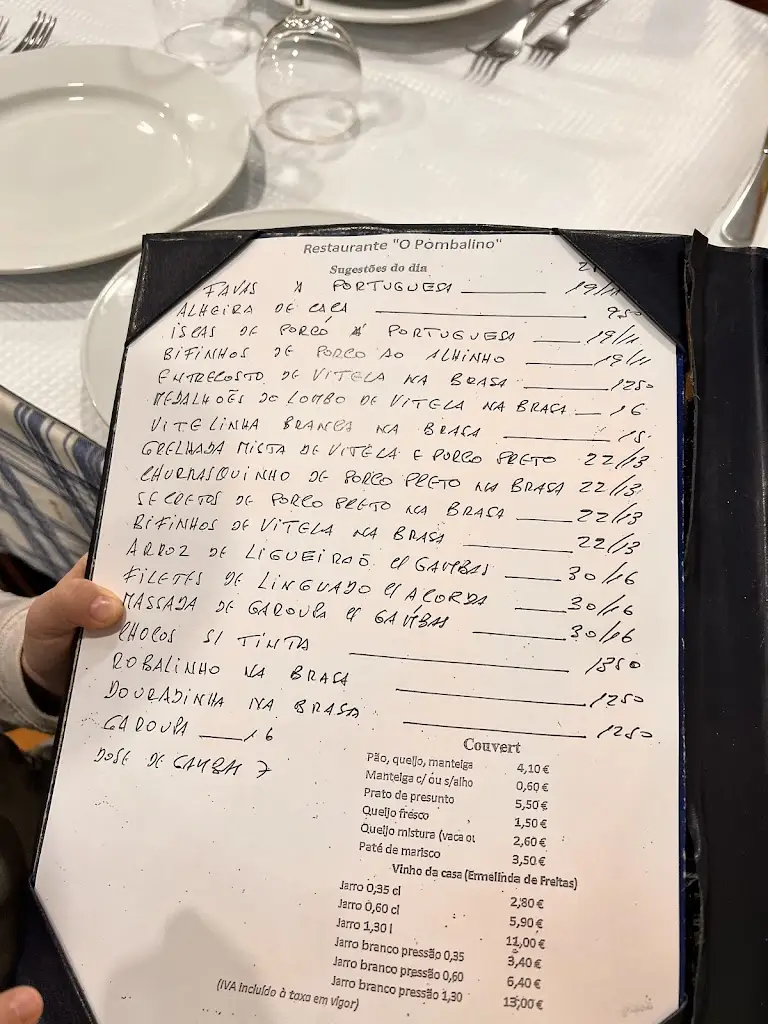 Restaurante "O Pombalino"
Sugestões do dia
FAVAS À PORTUGUESA 19/11
ALHEIRA DE CAÇA 950
ISCAS DE PORCO À PORTUGUESA 19/11
BIFINHOS DE PORCO AO ALHINHO 19/11
ENTRECOSTO DE VITELA NA BRASA 1250
MEDALHÕES DO LOMBO DE VITELA NA BRASA 16
VITELINHA BRANCA NA BRASA 15
GRELHADA MISTA DE VITELA E PORCO PRETO 22/13
CHURRASQUINHO DE PORCO PRETO NA BRASA 22/13
SECRETOS DE PORCO PRETO NA BRASA 22/13
BIFINHOS DE VITELA NA BRASA 22/13
ARROZ DE LIGUEIRÃO C/ GAMBAS 30/16
FILETES DE LINGUADO C/ AÇORDA 30/16
MASSADA DE GAROUPA C/ GAMBAS 30/16
CHOCOS S/ TINTA 1350
ROBALINHO NA BRASA 1250
DOURADINHA NA BRASA 1250
GAROUPA 16
DOSE DE GAMBAS 7
Couvert
Pão, queijo, manteiga 4,10 €
Manteiga c/ ou s/alho 0,60 €
Prato de presunto 5,50 €
Queijo fresco 1,50 €
Queijo mistura (vaca ou 2,60 €
Paté de marisco 3,50 €
Vinho da casa (Ermelinda de Freitas)
Jarro 0,35 cl 2,80 €
Jarro 0,60 cl 5,90 €
Jarro 1,30 l 11,00 €
Jarro branco pressão 0,35 3,40 €
Jarro branco pressão 0,60 6,40 €
Jarro branco pressão 1,30 13,00 €
(IVA incluído à taxa em vigor)